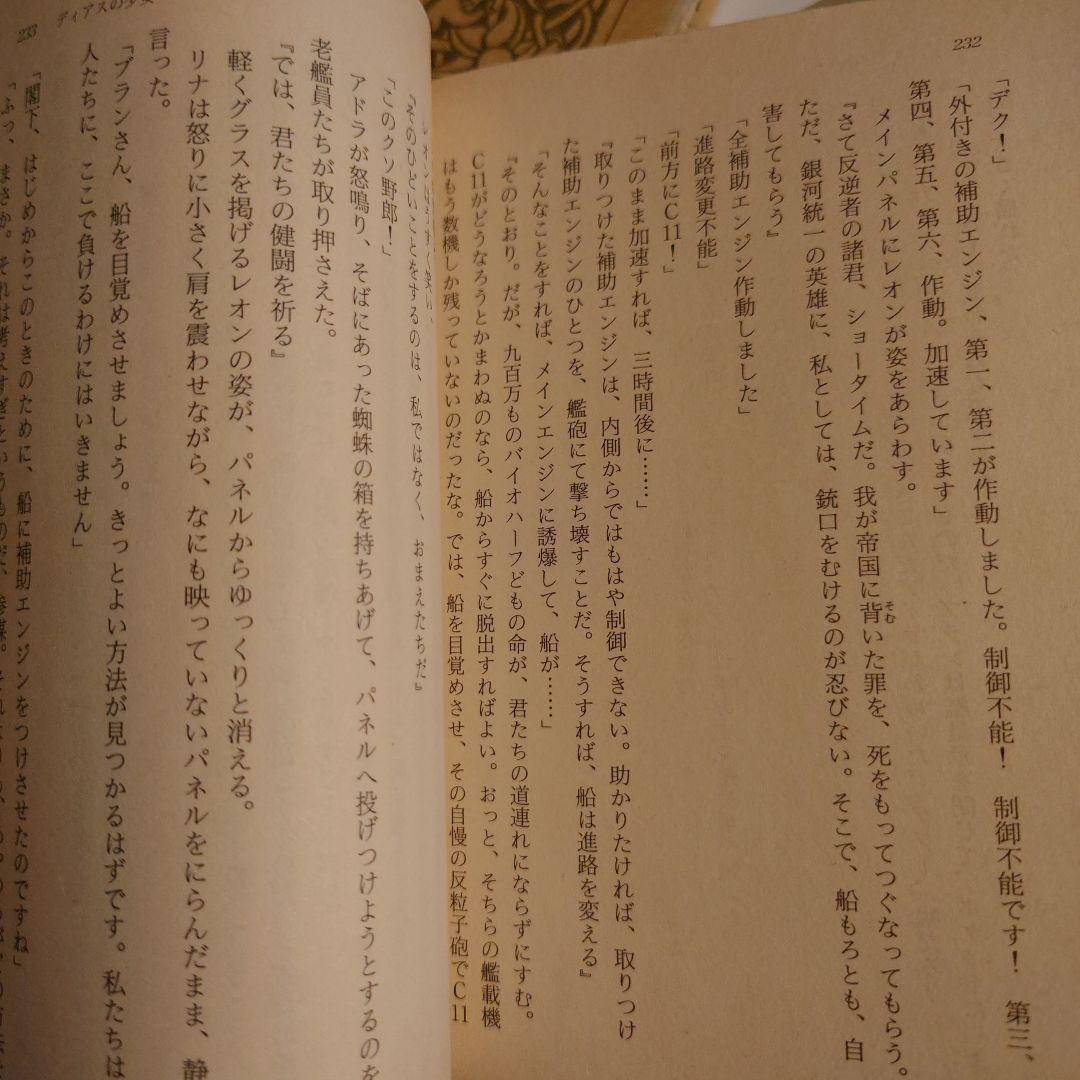 232
「デク！」
「外付きの補助エンジン、第一、第二が作動しました。制御不能！　制御不能です！　第三、
第四、第五、第六、作動。加速しています」
メインパネルにレオンが姿をあらわす。
『さて反逆者の諸君、ショータイムだ。我が帝国に背いた罪を、死をもってつぐなってもらう。
そむ
ただ、銀河統一の英雄に、私としては、銃口をむけるのが忍びない。そこで、船もろとも、自
害してもらう』
「全補助エンジン作動しました」
「進路変更不能」
「前方にC11！」
「このまま加速すれば、三時間後に……」
『取りつけた補助エンジンは、内側からではもはや制御できない。助かりたければ、取りつけ
た補助エンジンのひとつを、艦砲にて撃ち壊すことだ。そうすれば、船は進路を変える』
「そんなことをすれば、メインエンジンに誘爆して、船が……」
『そのとおり。だが、九百万ものバイオハーフどもの命が、君たちの道連れにならずにすむ。
C11がどうなろうとかまわぬのなら、船からすぐに脱出すればよい。おっと、そちらの艦載機
はもう数機しか残っていないのだったな。では、船を目覚めさせ、その自慢の反粒子砲でC11
233
ディアスの少女
『そのひどいことをするのは、私ではなく、おまえたちだ』
「このクソ野郎！」
アドラが怒鳴り、そばにあった蜘蛛の箱を持ちあげて、パネルへ投げつけようとするのを
老艦員たちが取り押さえた。
『では、君たちの健闘を祈る』
軽くグラスを掲げるレオンの姿が、パネルからゆっくりと消える。
リナは怒りに小さく肩を震わせながら、なにも映っていないパネルをにらんだまま、静
言った。
「ブランさん、船を目覚めさせましょう。きっとよい方法が見つかるはずです。私たちは
人たちに、ここで負けるわけにはいきません」
「閣下、はじめからこのときのために、船に補助エンジンをつけさせたのですね」
「ふっ、まさか。それは考えすぎというものだ、参謀。